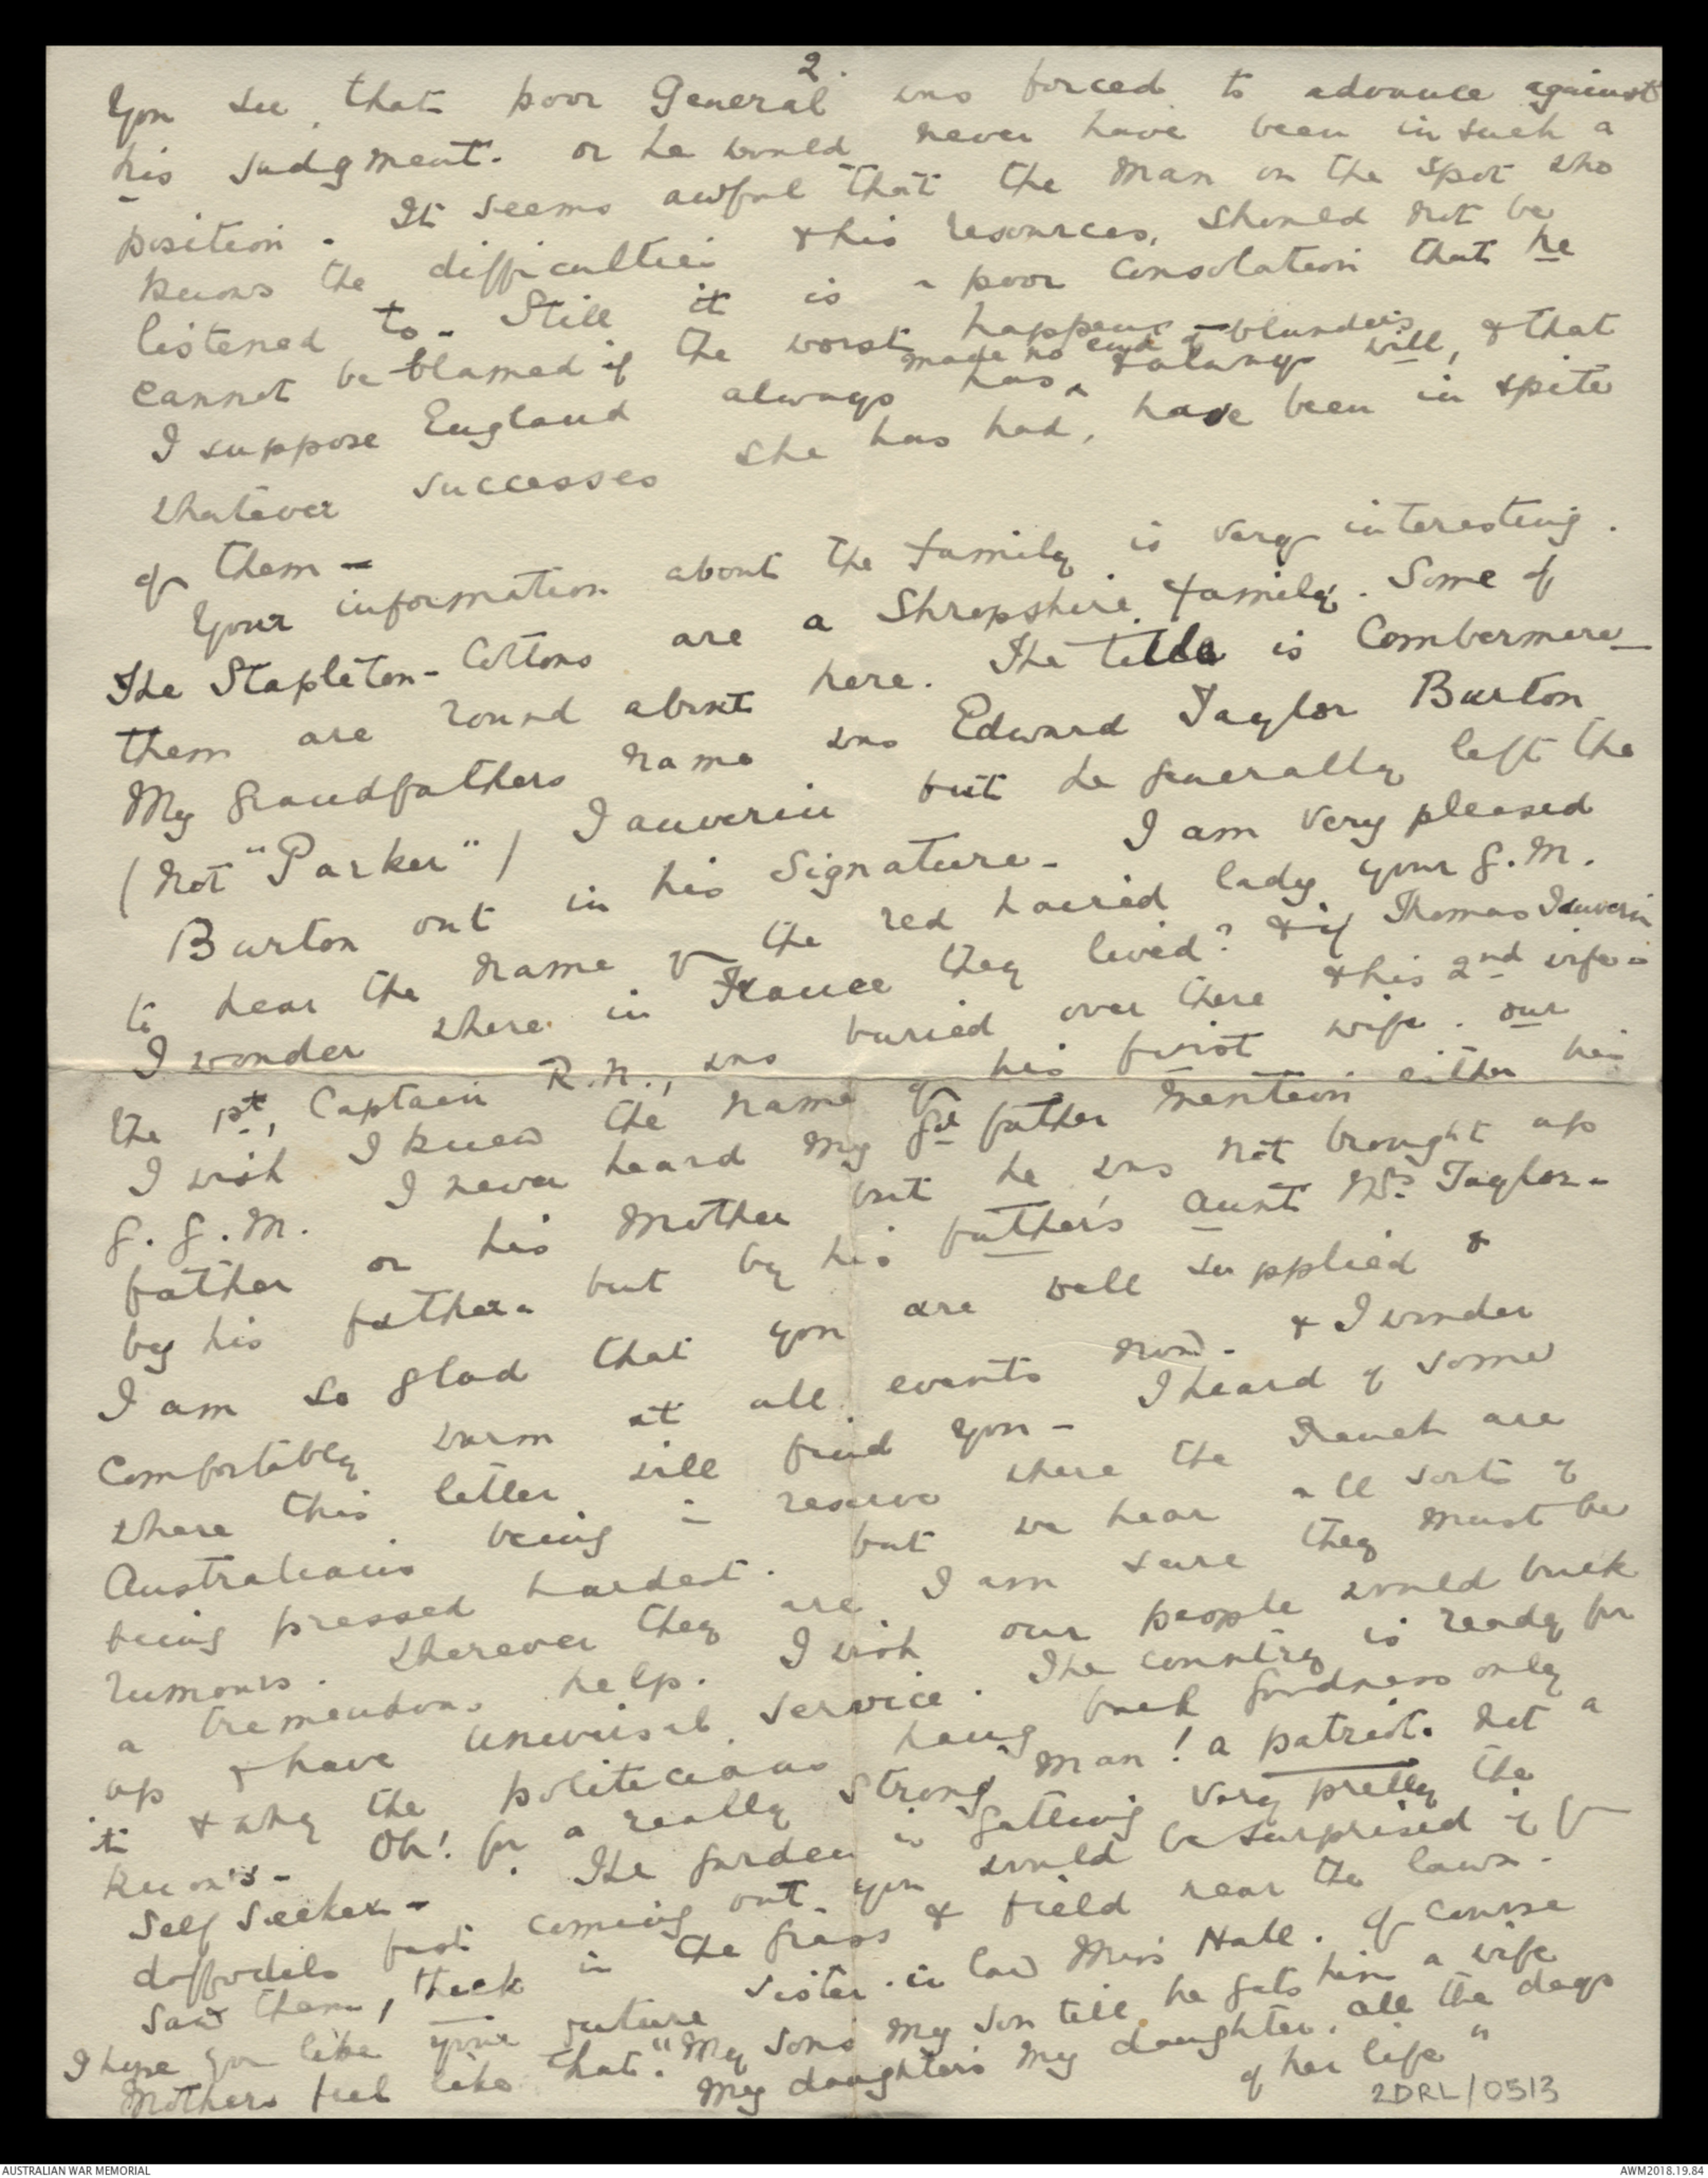 2.
You see, that poor General was forced to advance against
his judgment. or he would never have been in such a
position. It seems awful that the man on the spot who
knows the difficulties & his resources, should not be
listened to. Still it is a poor consolation that he
cannot be blamed if the worst happens
I suppose England always has made no end of blunders & always will, & that
whatever successes she has had, have been in spite
of them -
Your information about the family is very interesting.
The Stapleton-Cottons are a Shropshire family. Some of
them are round about here. The title is Combermere -
My Grandfathers name was Edward Taylor Burton
(not "Parker") Janverin but he generally left the
Burton out in his signature - I am very pleased
to hear the name of the red haired lady your G.M.
I wonder where in France they lived? & if Thomas Janverin
the 1st, Captain R.N., was buried over there & his 2nd wife -
I wish I knew the name of his first wife. our
G.G.M. I never heard my Gd father mention either his
father or his mother but he was not brought up
by his father - but by his father's aunt Mrs Taylor -
I am so glad that you are well supplied &
comfortably warm at all events now - & I wonder
where this letter will find you - I heard of some
Australians being in reserve where the French are
being pressed hardest. but we hear all sorts of
rumours. Wherever they are I am sure they must be
a tremendous help. I wish our people would buck
up & have universal service. The country is ready for
it & why the politicians hang back goodness only
knows - Oh! for a really strong man! a patriot. not a
self seeker - The garden is getting very pretty the
daffodils fast coming out. you would be surprised if you
saw them, thick in the grass & field near the lawn -
I hope you like your future sister-in law Miss Hall. Of course
Mothers feel like that. "My sons my son till he gets him a wife
My daughter's my daughter, all the days
of her life"
2DRL/0513
AUSTRALIAN WAR MEMORIAL
AWM2018.19.84